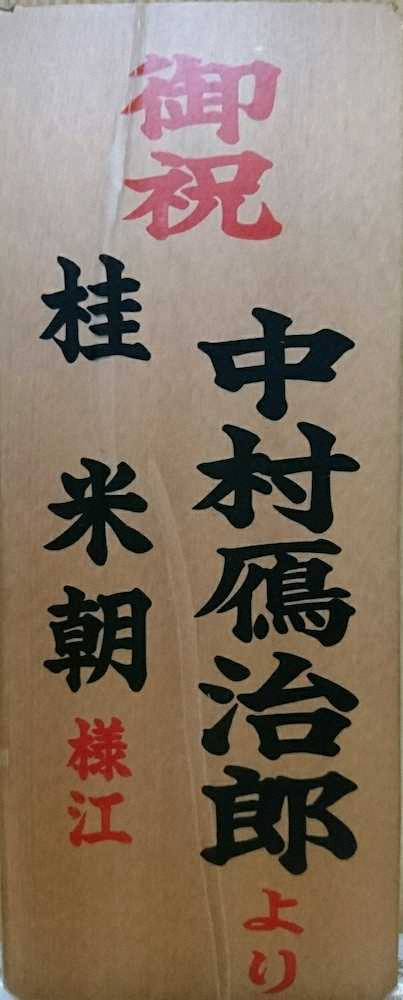 御祝
中村鴈治郎より
桂 米朝様江